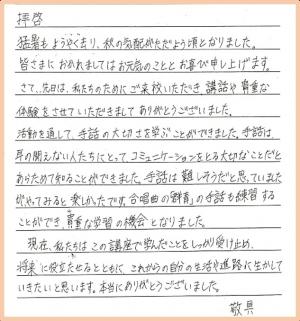 拝啓
猛暑もようやくおさまり、秋の気配がただよう頃となりました。
皆さまにおかれましてはお元気のこととお喜び申し上げます。
さて、先日は、私たちのためにご来校いただき、講話や貴重な
体験をさせていただきましてありがとうございました。
活動を通して、手話の大切さを学ぶことができました。手話は、
耳の聞えない人たちにとって、コミュニケーションをとる大切なことだと
あらためて知ることができました。手話は難しそうだと思っていました
がやってみると楽しかったです。合唱曲の「群青」の手話も練習する
ことができ、貴重な学習の機会となりました。
現在、私たちはこの講座で学んだことをしっかり受け止め、
将来に役立たせるとともに、これからの自分の生活や進路に生かして
いきたいと思います。本当にありがとうございました。
敬具